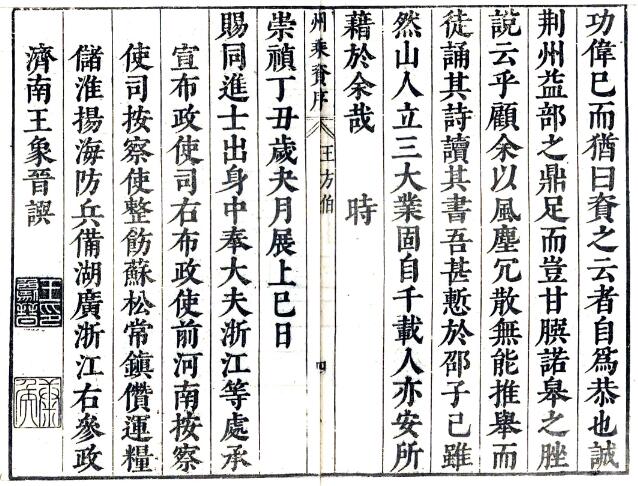 功偉已而猶曰資之云者自爲恭也誠
荆州益部之鼎足而豈甘腴諾皋之脞
說云乎顧余以風塵冗散無能推舉而
徒誦其詩讀其書吾甚慙於邵子已雖
然山人立三大業固自千載人亦安所
藉於余哉　時
州乘資序　王方伯　四
崇禎丁丑歲夬月展上巳日
賜同進士出身中奉大夫浙江等處承
宣布政使司右布政使前河南按察
使司按察使整飭蘇松常鎭儹運糧
儲淮揚海防兵備湖廣浙江右參政
濟南王象晉譔